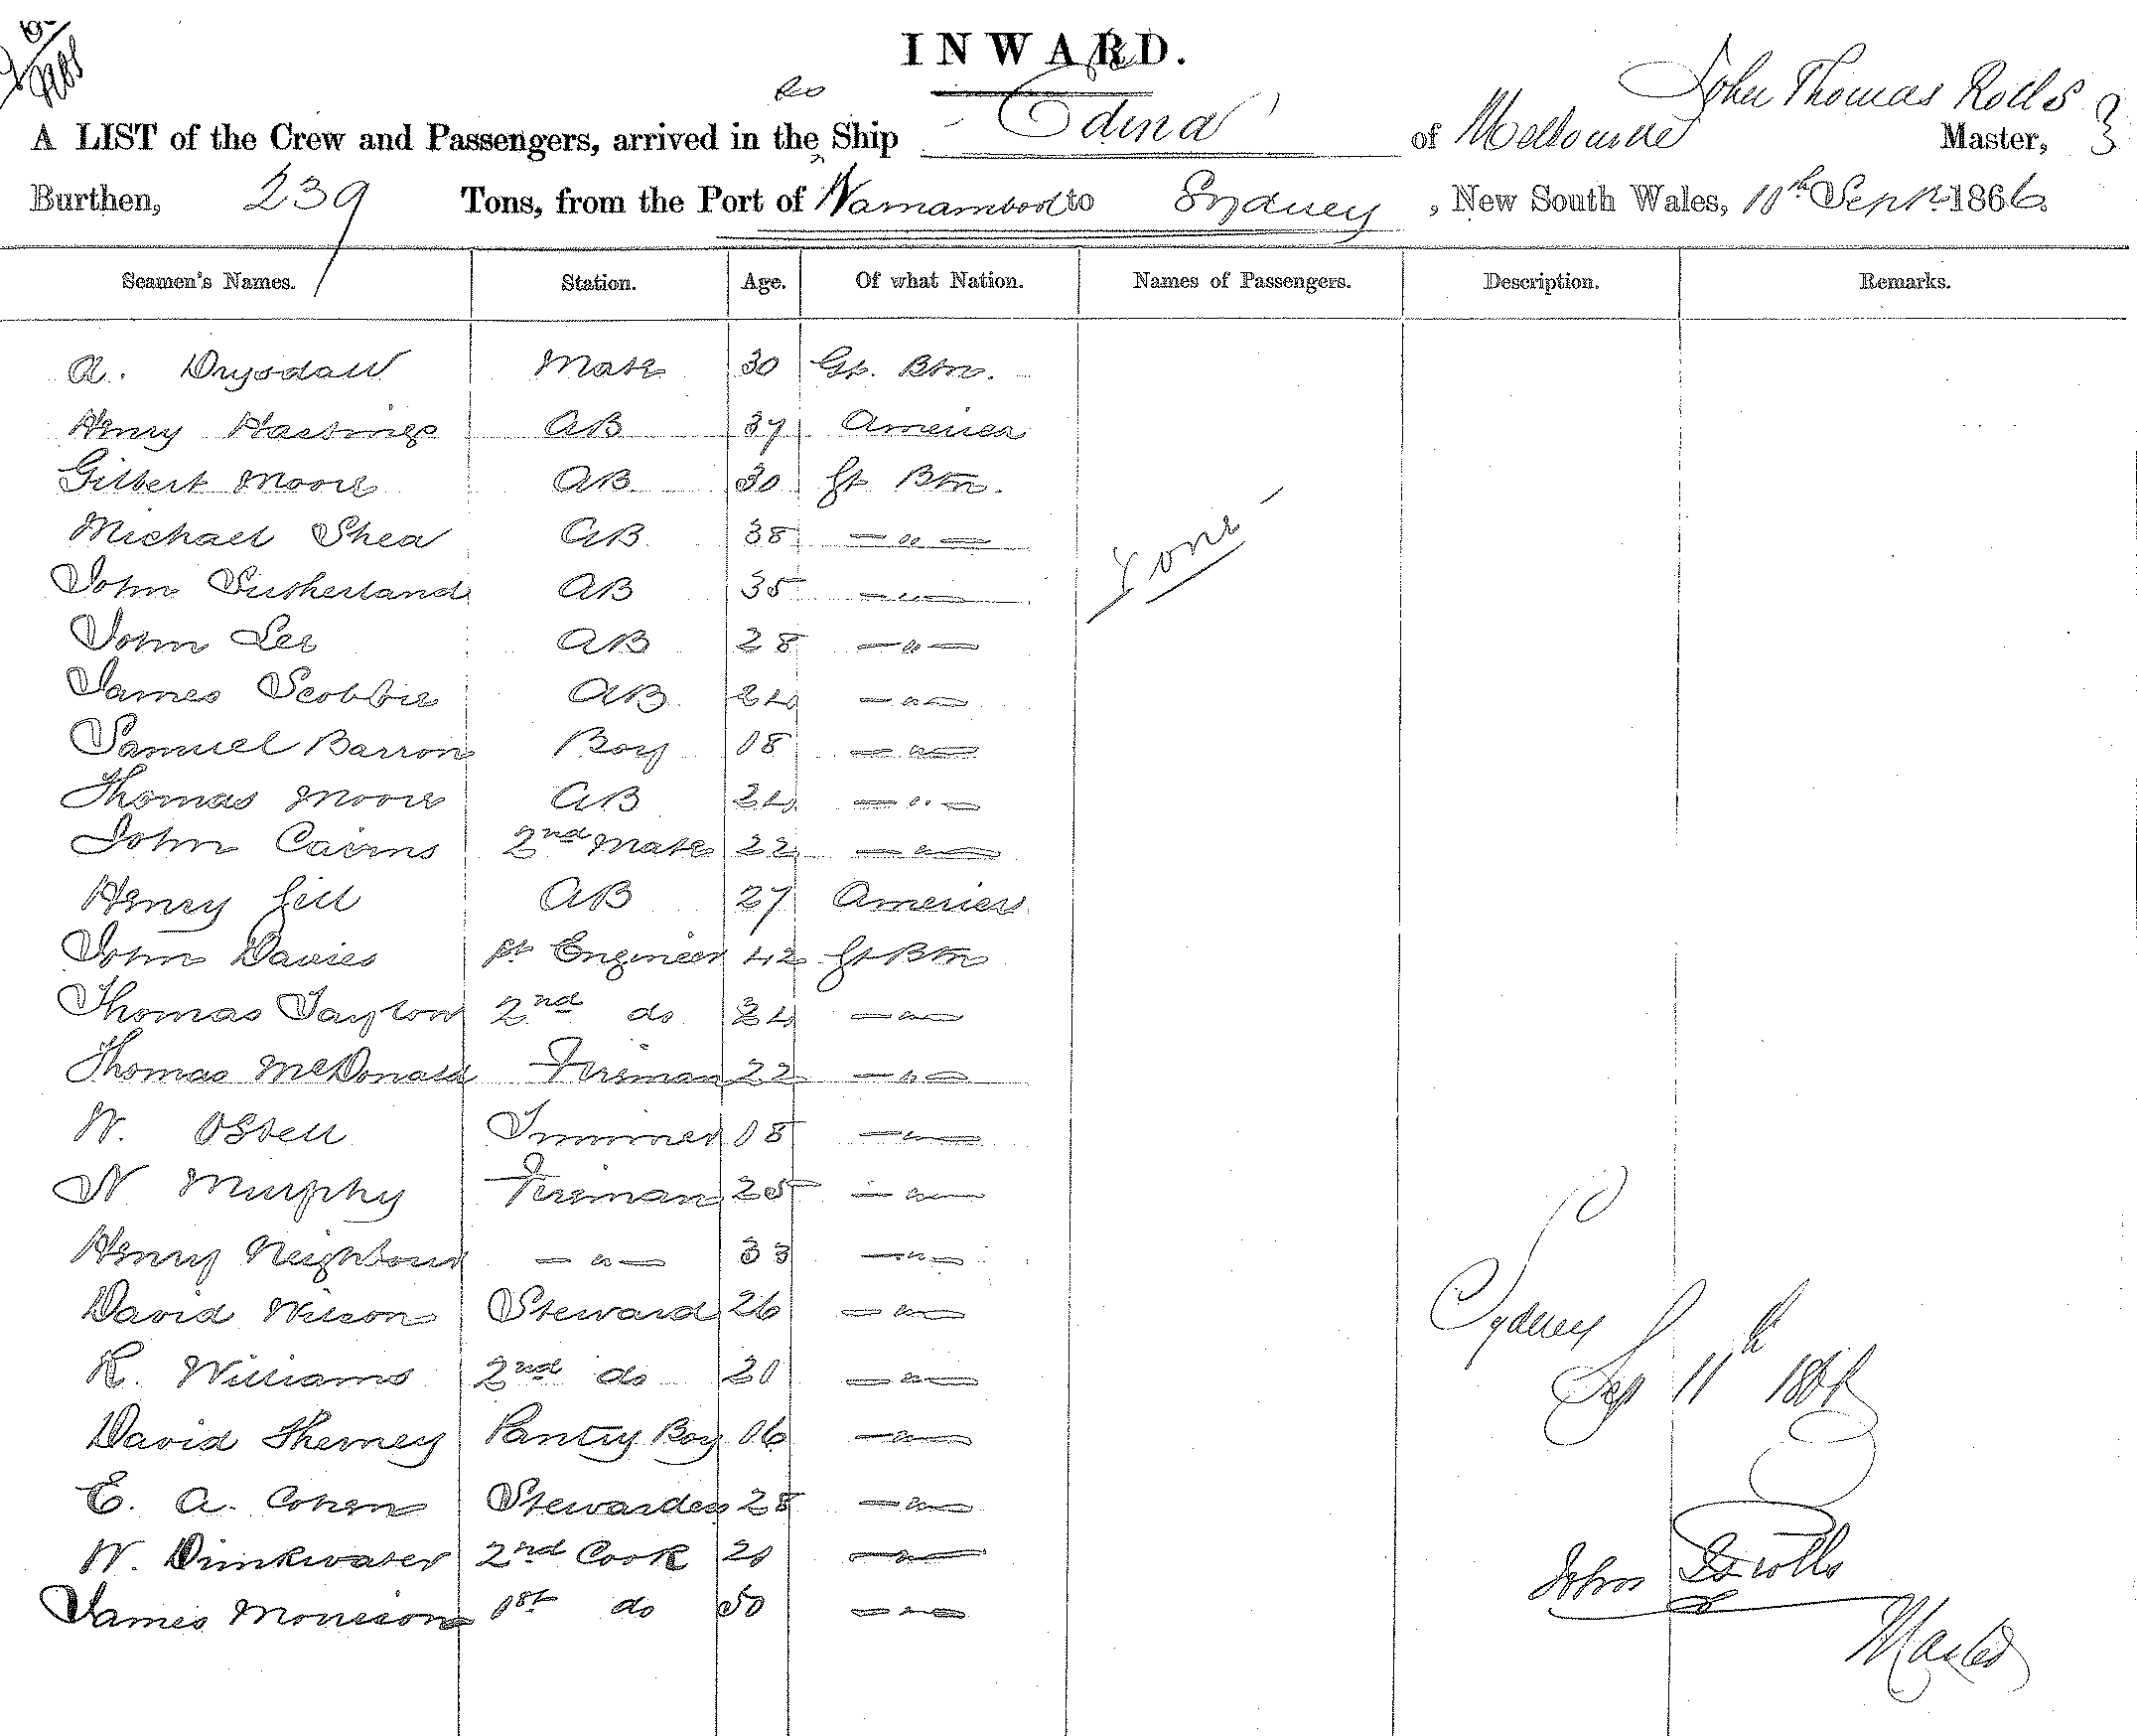 INWARD.
John Thomas Rolls
A LIST of the Crew and Passengers, arrived in the Ship Edina of Melbourne Master,
Burthen, 239 Tons, from the Port of Warnambool to Sydney, New South Wales, 11th Sept 1866
Seamen's Names. Station. Age. Of what Nation. Names of Passengers. Description. Remarks.
A. Drysdall Mate 30 Gt. Btn.
Henry Hastings AB 37 America
Gilbert Moore AB 30 Gt Btn.
Michael Shea AB 38 — " —
John Sutherland AB 35 — " —
John Lee AB 28 — " —
James Scobbie AB 24 — " —
Samuel Barron Boy 18 — " —
Thomas Moore AB 24 — " —
John Cairns 2nd Mate 22 — " —
Henry Gill AB 27 America
John Davies 1st Engineer 42 Gt Btn
Thomas Taylor 2nd do 34 — " —
Thomas McDonald Fireman 22 — " —
W. Trimmer 18 — " —
N Murphy Fireman 25 — " —
Henry Neighbour — " — 33 — " —
David Wilson Steward 26 — " —
R. Williams 2nd do 20 — " —
David Pantry Boy 16 — " —
E. A. Cohen Stewardess 28 — " —
W. Drinkwater 2nd Cook 20 — " —
James Morrison 1st do 50 — " —
Sydney
Sep 11th 1866
John T Rolls
Master